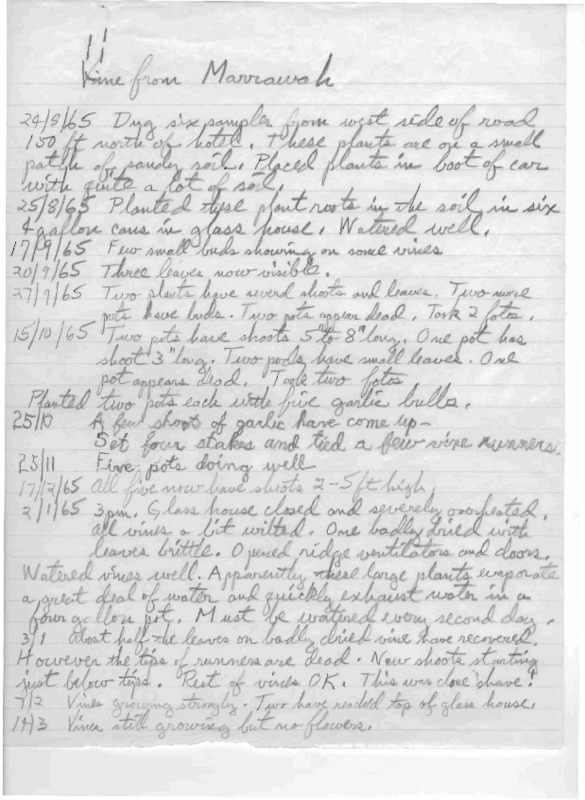 Vine from Marrawah
24/8/65 Dug six samples from west side of road
150 ft north of hotel. These plants are on a small
patch of sandy soil. Placed plants in boot of car
with quite a lot of soil.
25/8/65 Planted these plant roots in the soil in six
4 gallon cans in glass house. Watered well.
17/9/65 Few small buds showing on some vines
20/9/65 Three leaves now visible.
27/9/65 Two plants have several shoots and leaves. Two more
pots have buds. Two pots appear dead. Took 2 fotos.
15/10/65 Two pots have shoots 5" to 8" long. One pot has
shoot 3" long. Two pods have small leaves. One
pot appears dead. Took two fotos
Planted two pots each with five garlic bulbs.
25/10 A few shoots of garlic have come up-
Set four stakes and tied a few vine runners.
25/11 Five pots doing well
17/12/65 All five now have shoots 2-5 ft high.
2/1/65 3pm. Glass house closed and severely overheated.
All vines a bit wilted. One badly dried with
leaves brittle. Opened ridge ventilators and doors.
Watered vines well. Apparently these large plants evaporate
a great deal of water and quickly exhaust water in a
four gallon pot. Must be watered every second day.
3/1 About half the leaves on badly dried vine have recovered.
However the tips of runners are dead. New shoots starting
just below tips. Rest of vines OK. This was close shave!
7/2 Vines growing strongly. Two have reached top of glass house.
14/3 Vines still growing but no flowers.